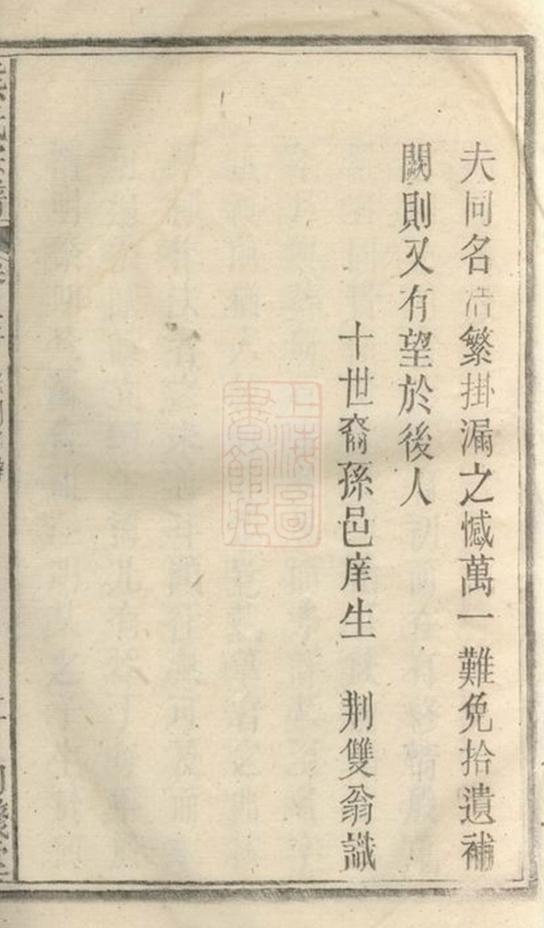 夫同名浩繁掛漏之憾萬一難免拾遺補
闕則又有望於後人
十世裔孫邑庠生 荆雙翁識
上海圖書館藏